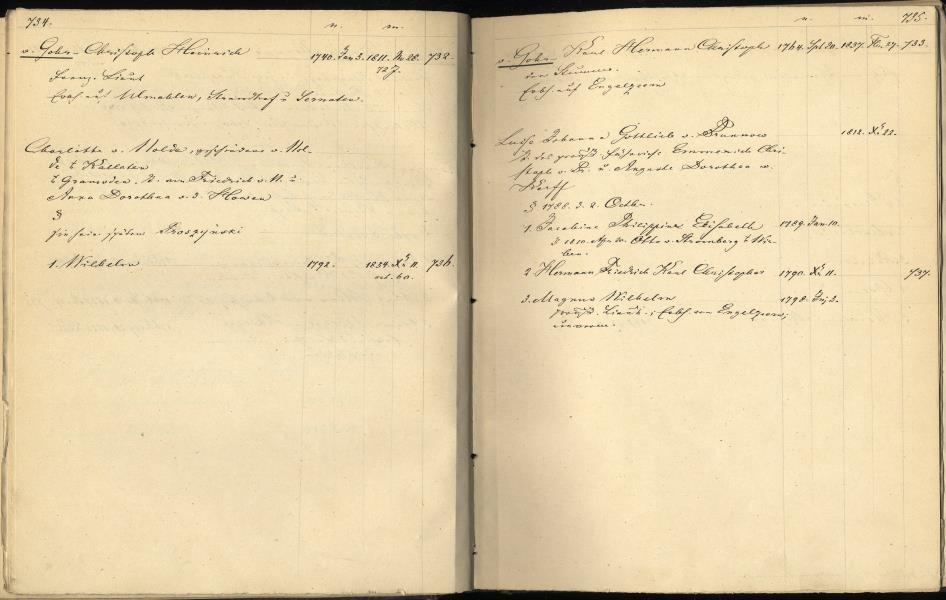 734. n. m.
v. Gohr Christoph Heinrich 1740. Jan 3. 1811. 28. 732.
72 J.
Franz. Lieut
Erbh. auf Ulmahlen, Strandhof u Sernaten.
Charlotte v. Nolde, geschiedene v. Nol-
de & Kalleten
Gramsden, T. von Friedrich v. N. u.
Anna Dorothea v. d. Howen
§
später Proszynski
1. Wilhelm 1792. 1834. Xr 11. 736.
aet. 60.
n. m. 735.
v. Gohr Karl Hermann Christoph 1764. Spt 20. 1837. Fbr. 27. 733.
der Stumme.
Erbh. auf Engelzeem
Luise Johanna Gottlieb v. Prunnow 1812. Xr 22.
T. des preuss. Emmerich Chri-
stoph v. Pr. u. Auguste Dorothea v.
Korff
§ 1788. 3. 2. Octbr.
1. Jacobine Philippine Elisabeth 1789. Jan. 10.
§ 1810. Apr 20. Otto v. Stromberg & Wir-
ben.
2 Hermann Friedrich Karl Christopher 1790. Xr 11. 737.
3. Magnus Wilhelm 1798. 3.
preuss. Lieut.; Erbh. von Engelzeem;
unverm.